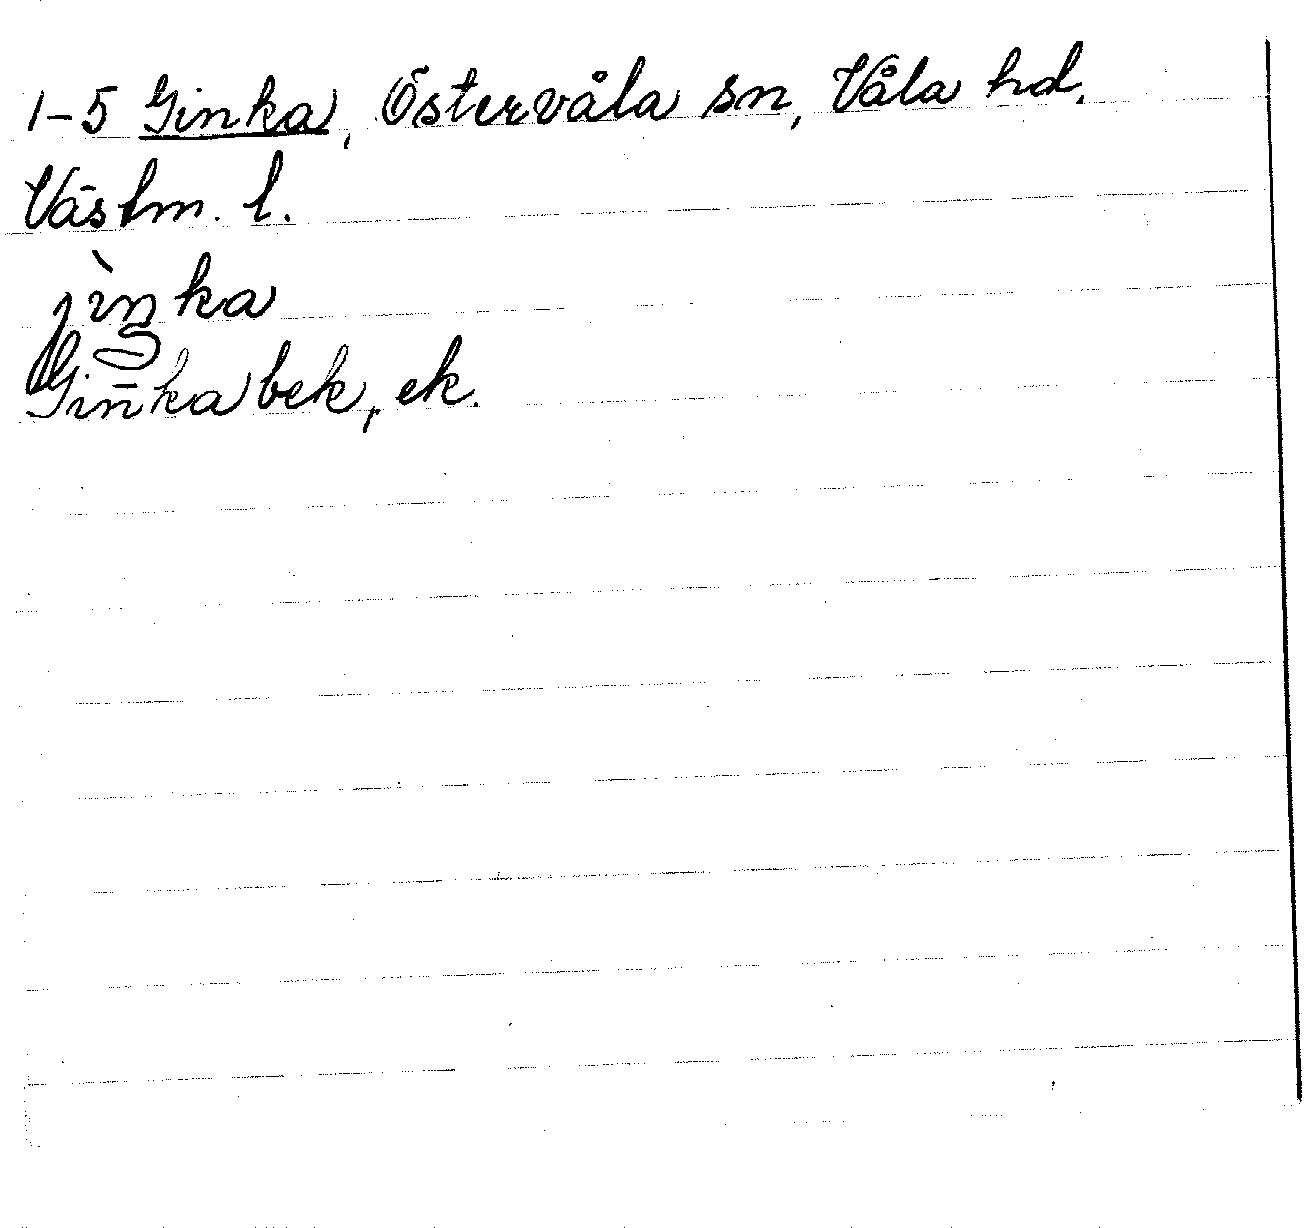 1-5 Ginka, Östervåla sn, Våla hd.
Västm. l.
jìnka
Ginka bek, ek.